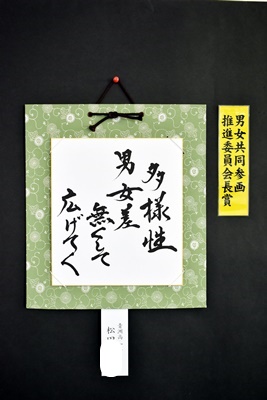 男女共同参画
推進委員会長賞
多様性
男女差
無くして
広げてく